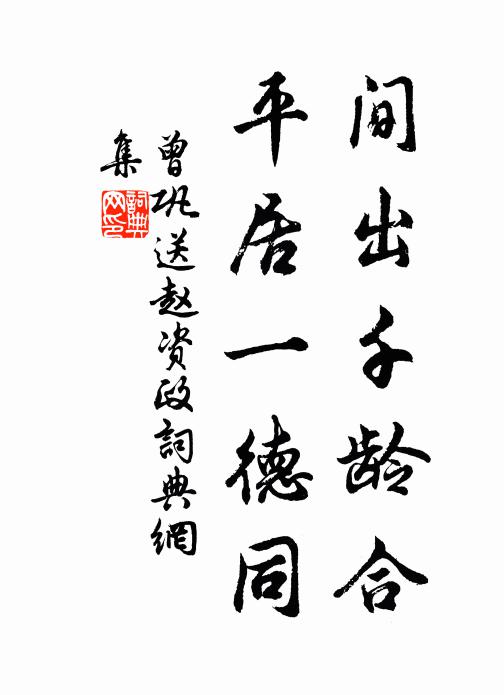 间出千龄合
平居一德同
曾巩送赵资政詞典網
集
詞典
网印